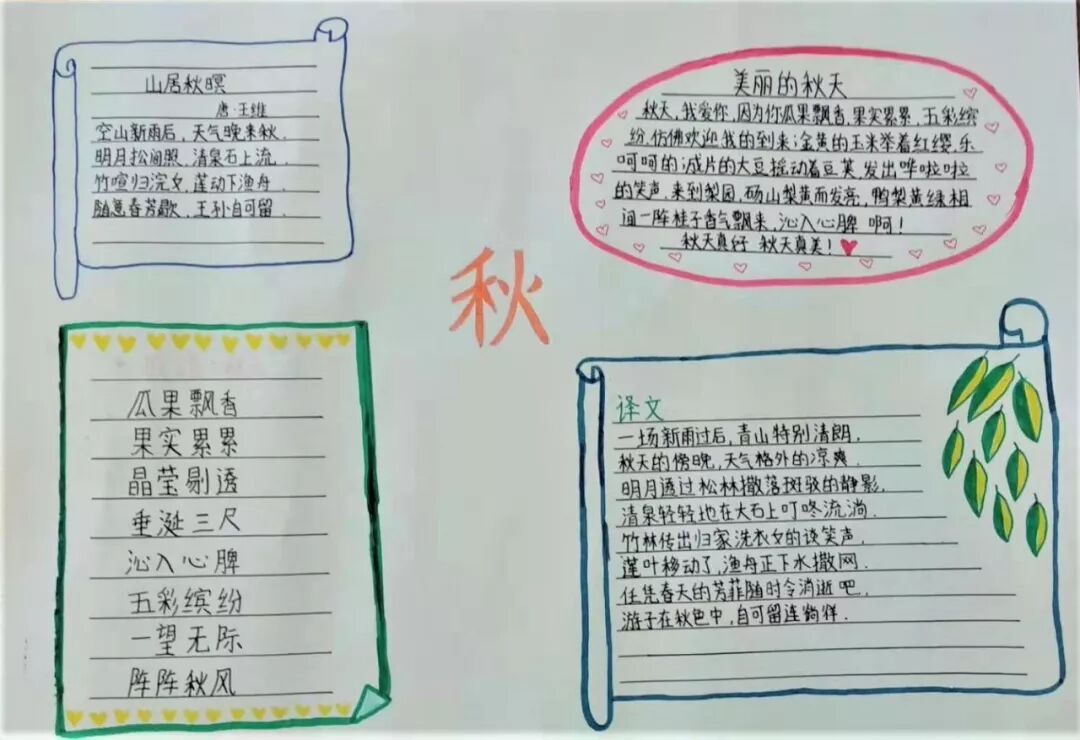 山居秋暝
唐·王维
空山新雨后,天气晚来秋.
明月松间照,清泉石上流.
竹喧归浣女,莲动下渔舟.
随意春芳歇,王孙自可留.
美丽的秋天
秋天,我爱你,因为你瓜果飘香,果实累累,五彩缤
纷,仿佛欢迎我的到来;金黄的玉米举着红缨,乐
呵呵的;成片的大豆摇动着豆荚,发出哗啦啦
的笑声.来到梨园,砀山梨黄而发亮,鸭梨黄绿相
间一阵桂子香气飘来,沁入心脾 啊!
秋天真好 秋天真美!
秋
瓜果飘香
果实累累
晶莹剔透
垂涎三尺
沁入心脾
五彩缤纷
一望无际
阵阵秋风
译文
一场新雨过后,青山特别清朗.
秋天的傍晚,天气格外的凉爽.
明月透过松林撒落斑驳的静影.
清泉轻轻地在大石上叮咚流淌.
竹林传出归家洗衣女的谈笑声.
莲叶移动了,渔舟正下水撒网.
任凭春天的芳菲随时令消逝吧.
游子在秋色中,自可留连徜徉.